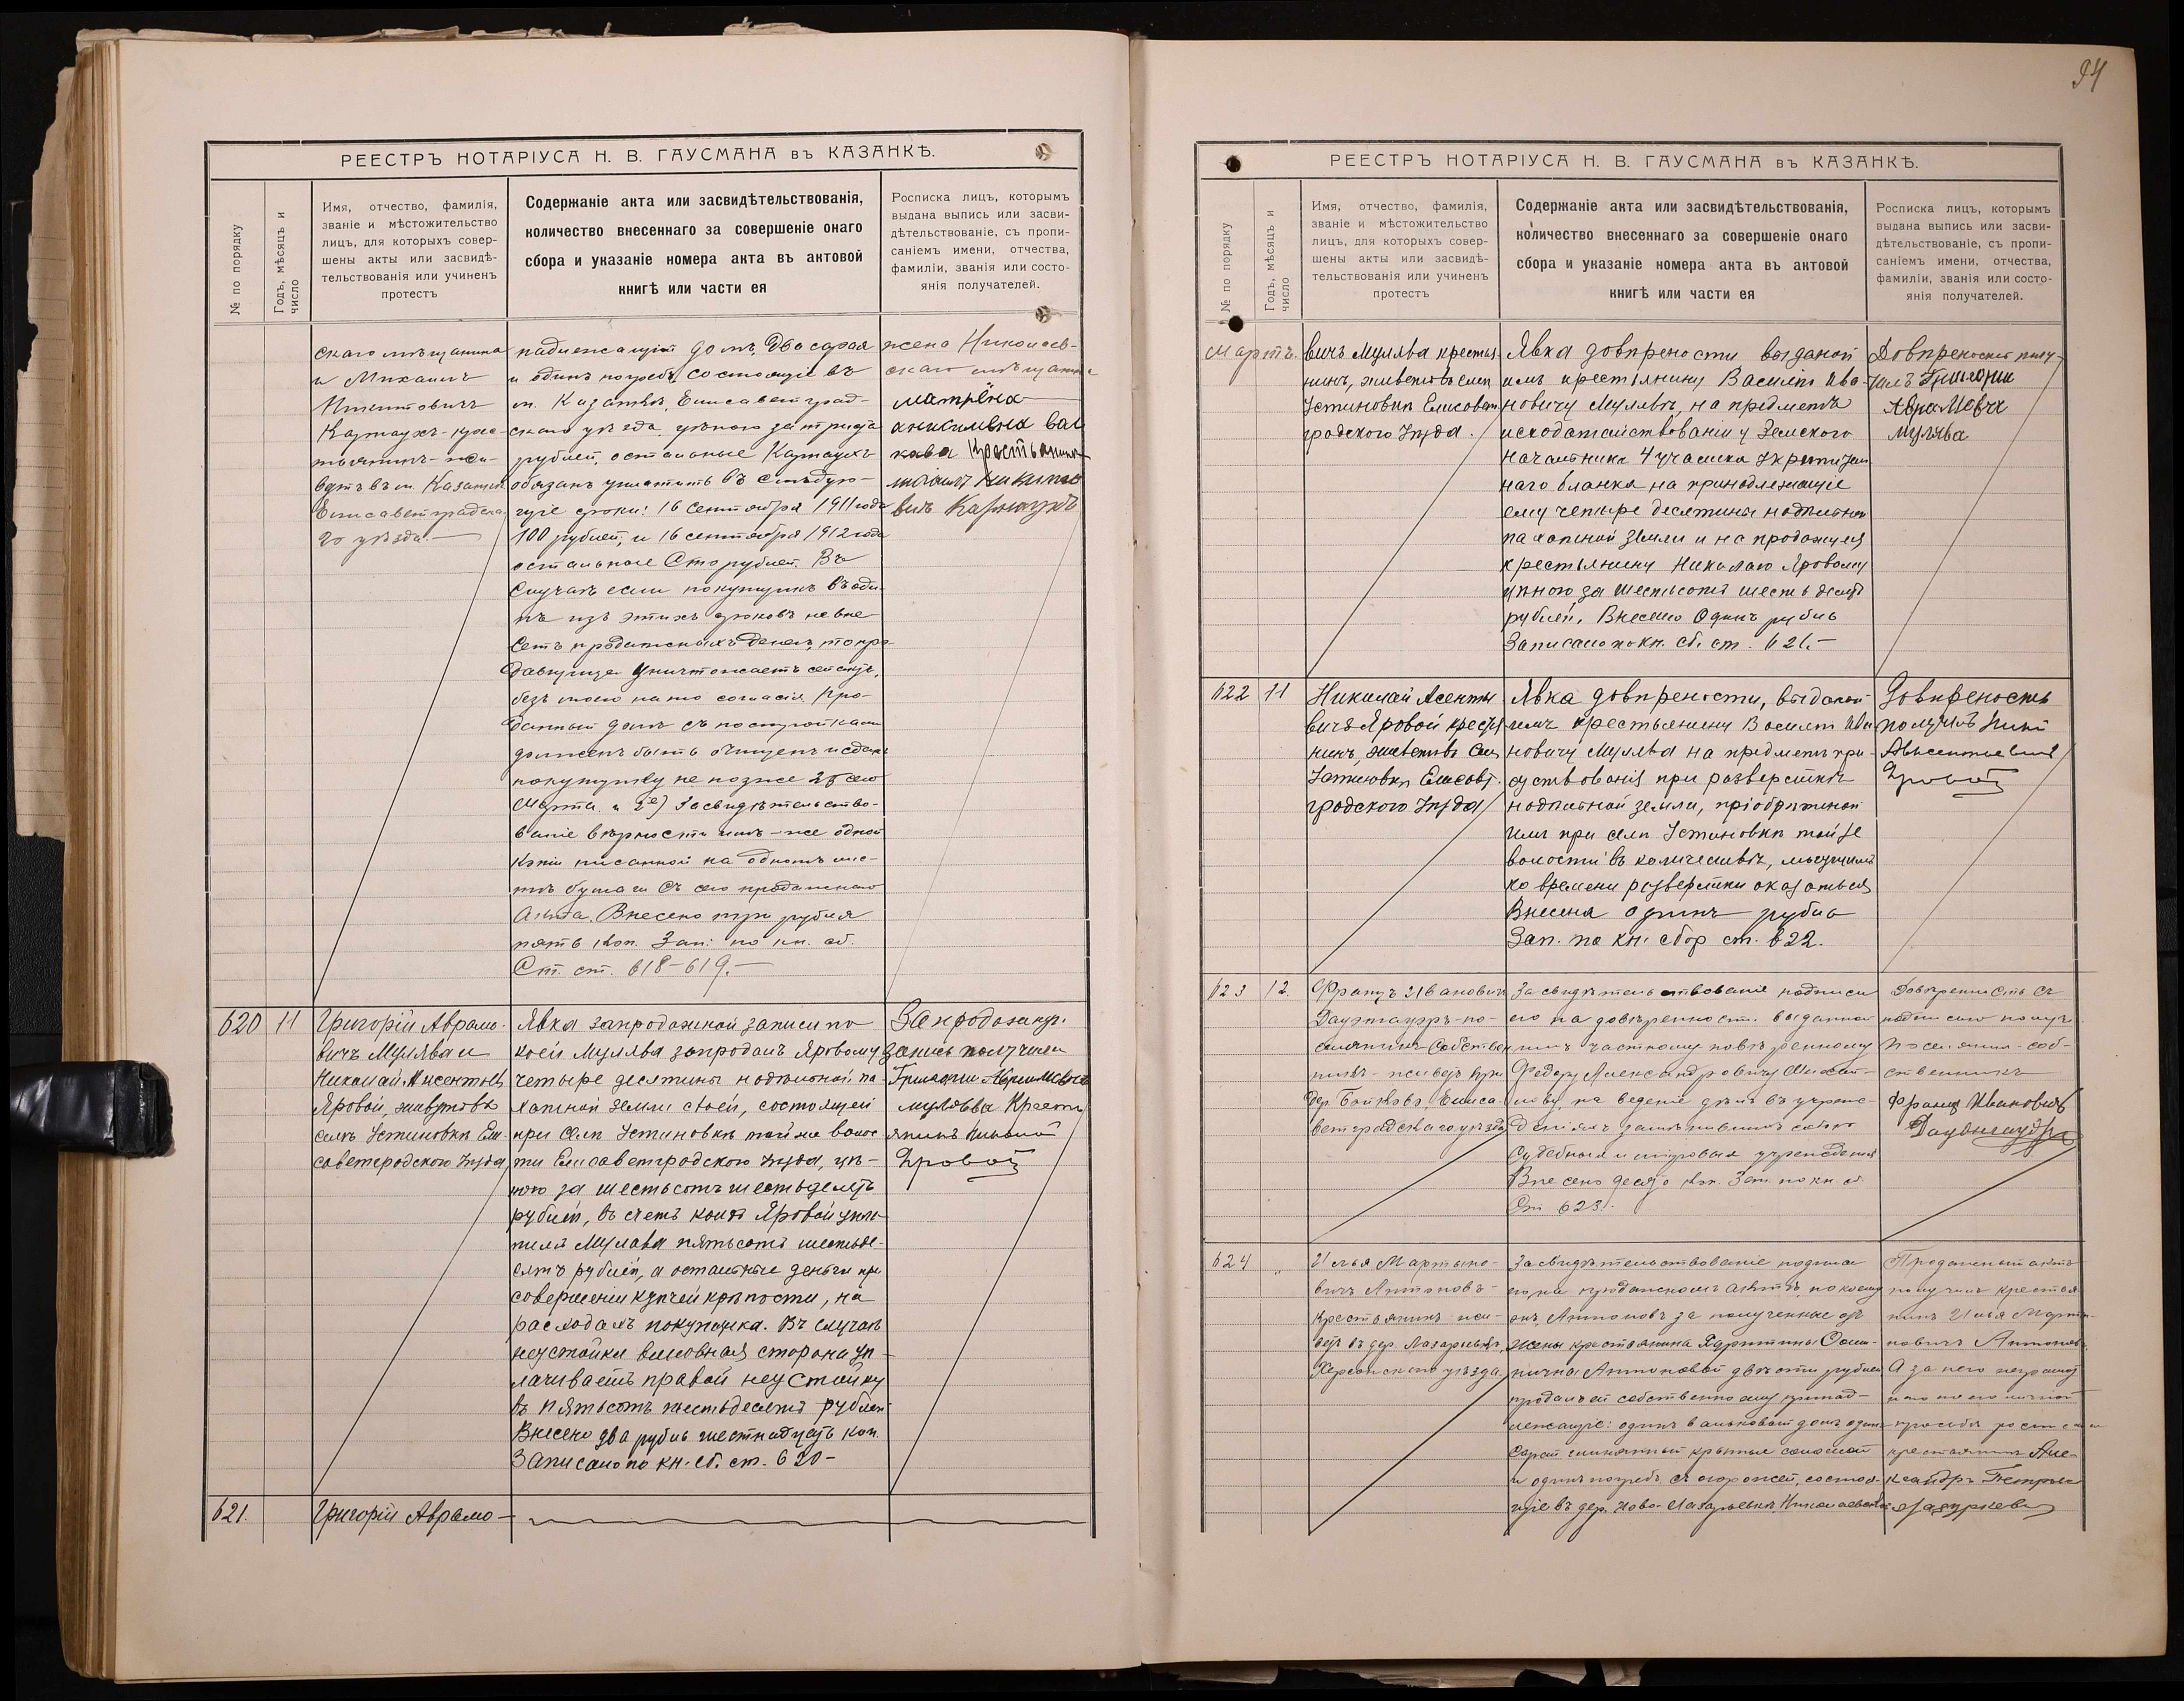 РЕЕСТРЪ НОТАРІУСА Н. В. ГАУСМАНА въ КАЗАНКѢ.
№ по порядку
Годъ, мѣсяцъ и
число
Имя, отчество, фамилія,
званіе и мѣстожительство
лицъ, для которыхъ совер-
шены акты или засвидѣ-
тельствованія или учиненъ
протестъ
Содержаніе акта или засвидѣтельствованія,
количество внесеннаго за совершеніе онаго
сбора и указаніе номера акта въ актовой
книгѣ или части ея
Росписка лицъ, которымъ
выдана выпись или засви-
дѣтельствованіе, съ пропи-
саніемъ имени, отчества,
фамиліи, званія или состо-
янія получателей.
скаго мѣщанина
и Михаилъ
Никитовичъ
Карнаухъ - кре-
стьянинъ - жи-
ветъ въ м. Казанкѣ
Елисаветградска
го уѣзда. —
надлежащій домъ, два сарая
и одинъ погребъ, состоящіе въ
м. Казанкѣ, Елисаветград-
скаго уѣзда, цѣною за триста
рублей, остальные Карнаухъ
обязанъ уплатить въ слѣдую-
щіе сроки: 16 Сентября 1911 года
100 рублей, и 16 сентября 1912 года
остальные Сто рублей. Въ
Случаѣ если покупщикъ въ оди-
нъ изъ этихъ сроковъ не вне
сетъ продажныхъ денегъ, то про-
давщица уничтожаетъ сей актъ,
безъ моего на то согласія. Про-
данный домъ съ постройками
долженъ быть очищенъ и сданъ
покупщику не позже 25 сего
Марта. и 2е) Засвидѣтельство-
ваніе вѣрности имъ - же одной
копіи писанной на одномъ лис-
тѣ бумаги съ сего продажнаго
Акта. Внесено три рубля
пять коп. Зап: по кн. сб.
Ст. ст. 618-619. —
жена Николаев-
скаго мѣщанина
матрёна
анисимвна
Крестьянин
михаил никито
вич Карнаухъ
620 11
Григорій Авраамо-
вичъ Мулява и
Николай Авксентьев
Яровой, живутъ въ
селѣ Устиновкѣ Ели-
саветградскаго уѣзда
Явка запродажной записи по
коей Мулява запродалъ Яровому
четыре десятины надѣльной па-
хатной земли своей, состоящей
при селѣ Устиновкѣ той же волос
ти Елисаветградскаго уѣзда, цѣ-
ною за шестьсотъ шестьдесятъ
рублей, въ счетъ коихъ Яровой упла-
тилъ Мулява пятьсотъ шестьде-
сятъ рублей, а остальные деньги при
совершеніи купчей крѣпости, на
расходахъ покупщика. Въ случаѣ
неустойки виновная сторона уп-
лачиваетъ правой неустойку
въ пятьсотъ шестьдесятъ рублей
Внесено два рубль шестнадцать коп.
Записано по кн. сб. ст. 620 —
Запродажную
запись получили
Григорий Авраамович
мулява Крестья
янинъ Николай
Яровой
621.
Григорій Авраамо —
94
РЕЕСТРЪ НОТАРІУСА Н. В. ГАУСМАНА въ КАЗАНКѢ.
№ по порядку
Годъ, мѣсяцъ и
число
Имя, отчество, фамилія,
званіе и мѣстожительство
лицъ, для которыхъ совер-
шены акты или засвидѣ-
тельствованія или учиненъ
протестъ
Содержаніе акта или засвидѣтельствованія,
количество внесеннаго за совершеніе онаго
сбора и указаніе номера акта въ актовой
книгѣ или части ея
Росписка лицъ, которымъ
выдана выпись или засви-
дѣтельствованіе, съ пропи-
саніемъ имени, отчества,
фамиліи, званія или состо-
янія получателей.
Мартъ.
вичъ Мулява крестья-
нинъ, живетъ въ селѣ
Устиновкѣ Елисавет-
градского уѣзда.
Явка довѣрености выданой
имъ крестьянину Василію Ива-
новичу Мулявѣ, на предметъ
исходатайствованія у Земского
начальника 4 участка
наго бланка на принадлежащіе
ему четыре десятины надѣльной
пахатной земли и на продажу ея
крестьянину Николаю Яровому
цѣною за шестьсотъ шесть десятъ
рублей. Внесено Одинъ рубль
Записано по кн. сб. ст. 621. —
Довѣреность полу-
чилъ Григории
Аврамовч
мулява
622 11
Николай Авсентье
вичъ Яровой крестья
нинъ, живетъ въ селѣ
Устиновкѣ Елисавет-
градского уѣзда
Явка довѣрености, выданой
имъ крестьянину Василію Ива
новичу Мулява на предметъ при-
сутствованія при разверсткѣ
надѣльной земли, пріобрѣтеной
имъ при селѣ Устиновкѣ той же
волости въ количествѣ, могущимъ
ко времени разверстки оказаться
Внесеня одинъ рубль
Зап. по кн. сбор ст. 622.
Довѣреность
получилъ
Авксентьевич
Яровой
623 12.
Францъ Ивановичъ
Даузнауэръ - по-
селянинъ - Собствен
никъ - живетъ при
Елиса-
ветградскаго уѣзда
Засвидѣтельствованіе подписи
его на довѣренности, выданной
имъ частному повѣренному
Федору Александровичу
на веденіе дѣлъ въ учреж-
деніяхъ
Судебныя и мировыя учрежденія
Внесено десять коп. Зап. по кн. сб.
Ст 623.
Довѣренность съ
подписью получ
Поселянин - соб-
ственникъ
Франц Ивановичъ
624 "
Илья Мартыно-
вичъ Антоновъ -
Крестьянинъ - жи-
ветъ въ дер. Лазаревкѣ,
Херсонскаго уѣзда
Засвидѣтельствованіе подписи
его на продажномъ актѣ, по коему
онъ Антоновъ за полученные отъ
жены крестьянина
Антоновой двѣсти рублей
продалъ ей собственно ему принад-
лежащіе: одинъ вальковый домъ, одинъ
сарай глинянный крытые соломой
и одинъ погребъ съ огорожей, состоя-
щіе въ дер. Ново-Лазаревкѣ, Николаевской
Продажный актъ
получилъ крестья-
нинъ Илья Марты-
новичъ Антоновъ,
А за него неграмот
наго по его личной
просьбѣ росписался
крестьянинъ Але-
ксандръ